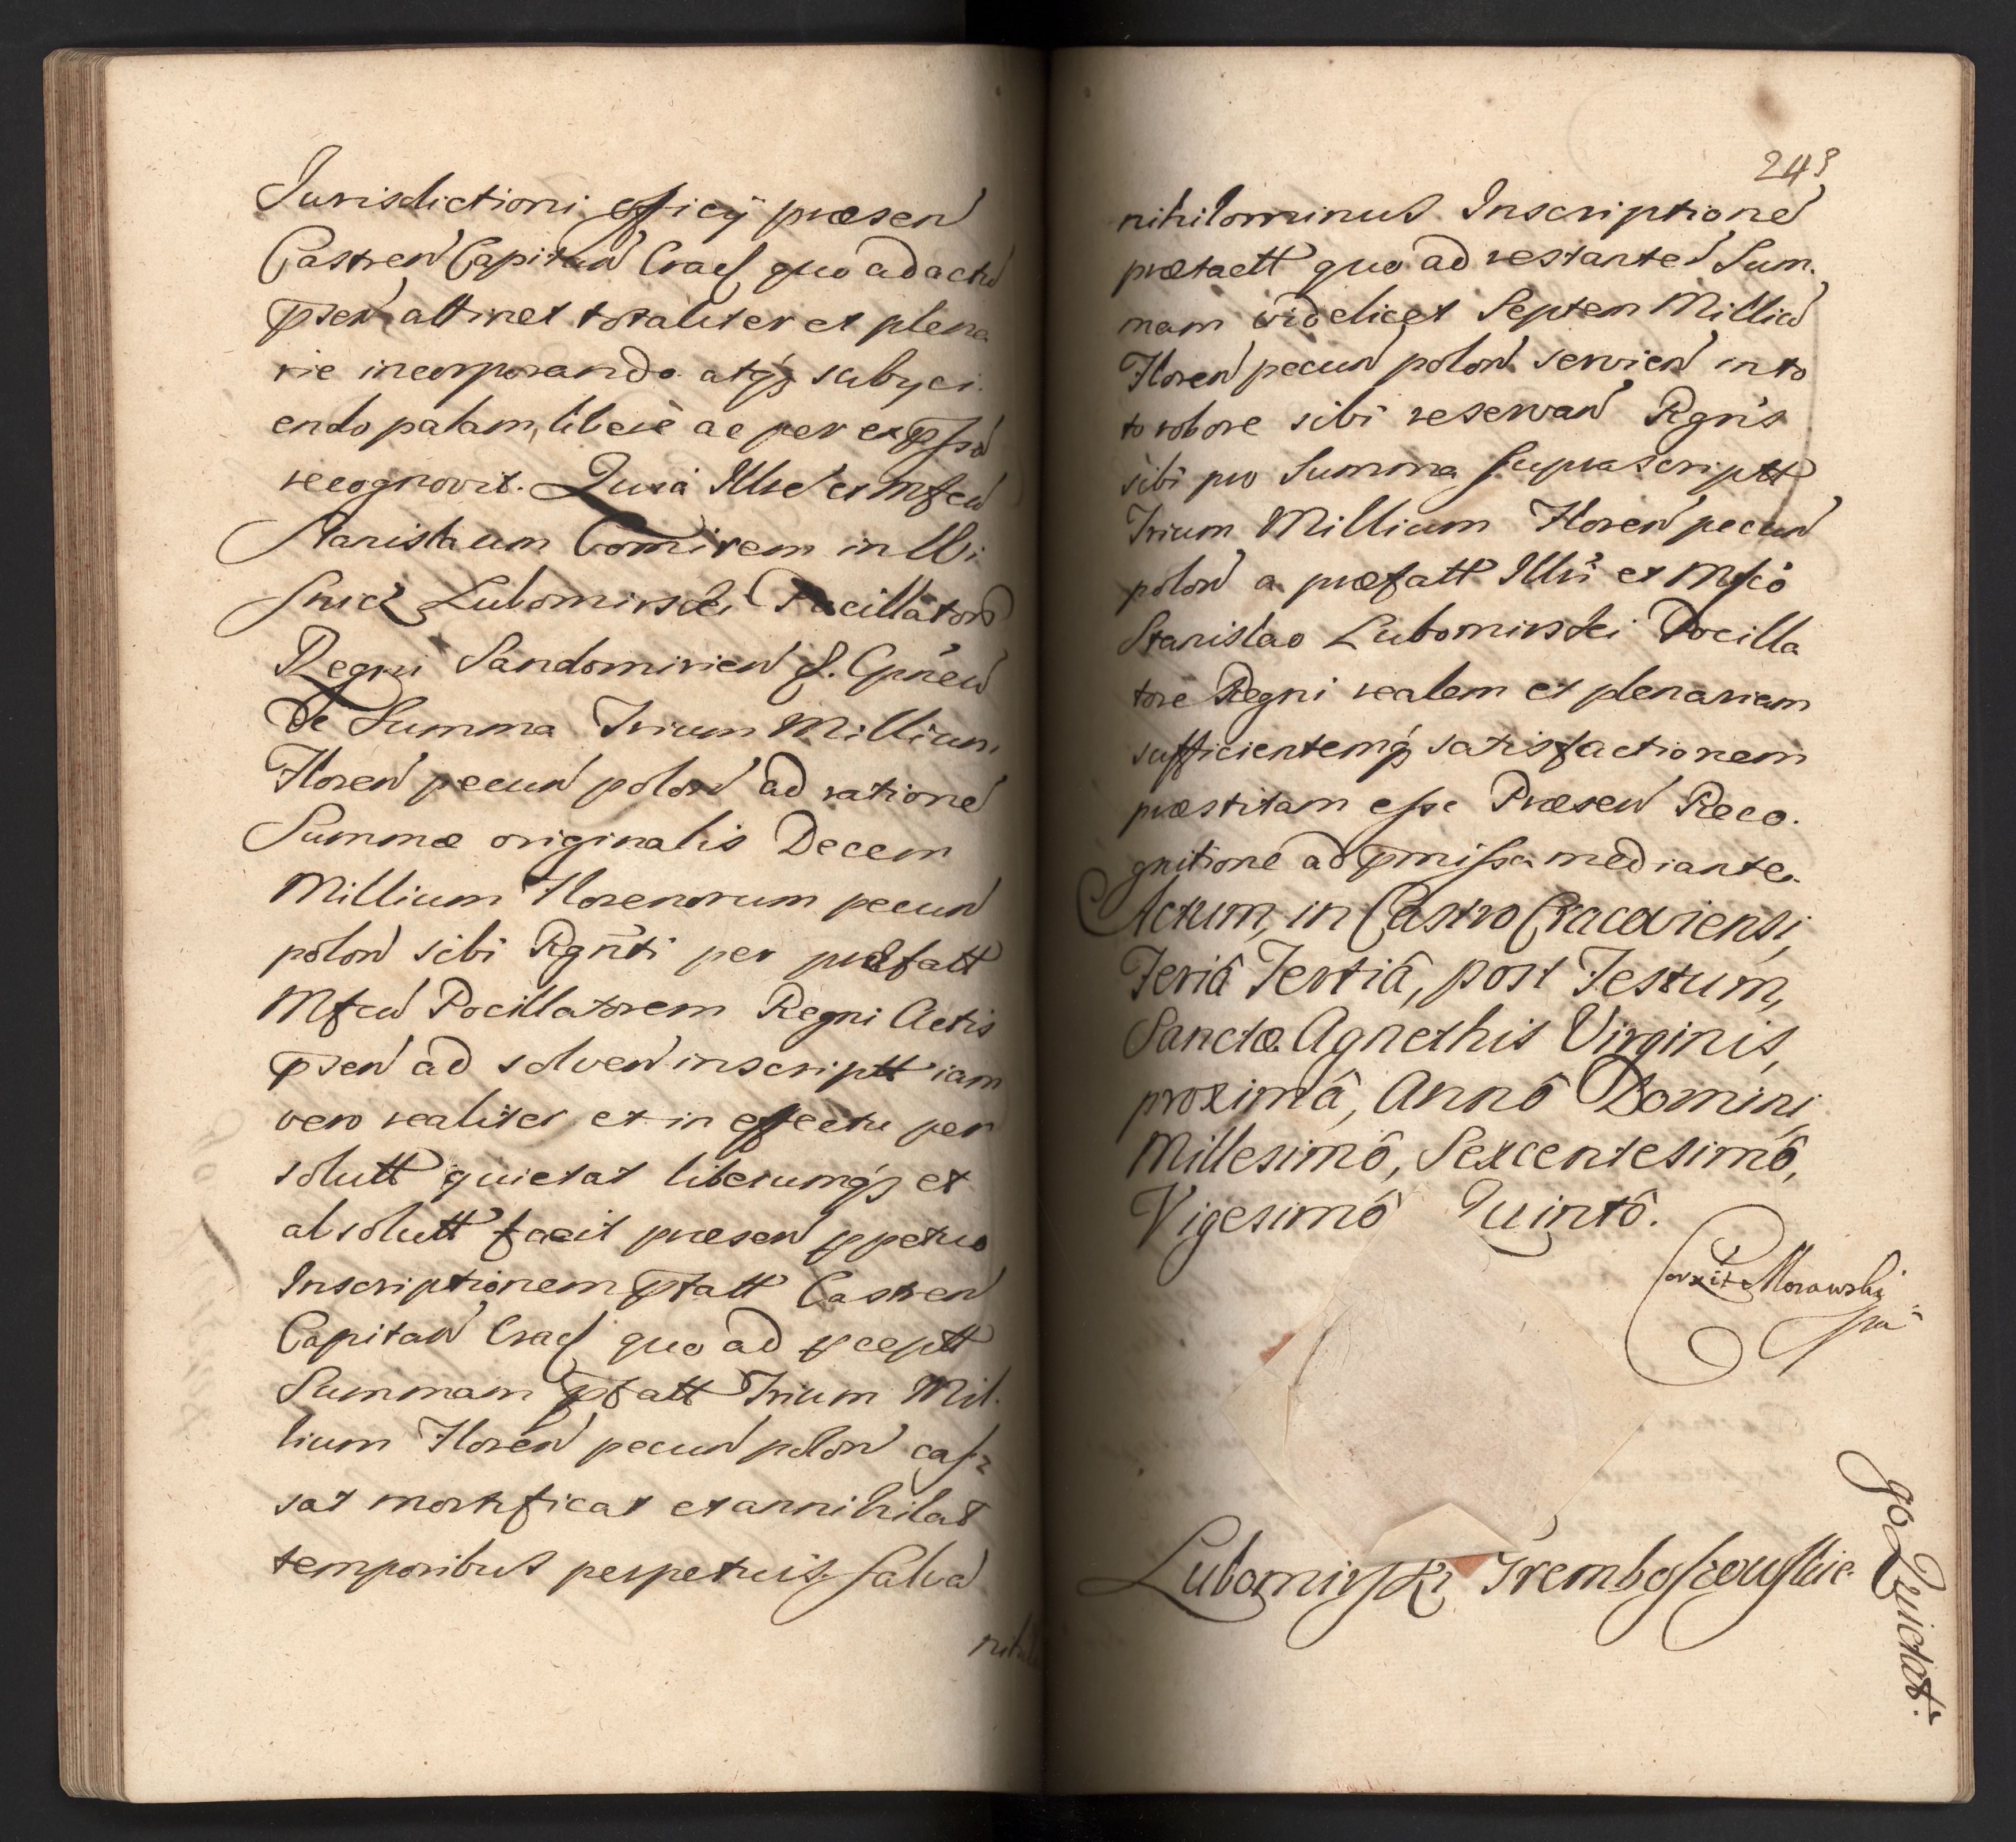 Jurisdictioni officÿ præsen
Castren Capitan Crac quo ad actu
prsen attinet totaliter et plena
rie incorporando atq subyci.
endo palam, libere ac per expsso
recognovit. Quia Illre et Mfcu
Stanislaum Comitem in Wi
snicz Lubomirski Pocillator
Regni Sandomirien &. Gnrew
de Summa Trium Millium
Floren pecun polon ad ratione
Summæ originalis Decem
Millium Florenorum pecun
polon sibi Rgnti per præfatt
Mfcu Pocillatorem Regni Actis
prsen ad solven inscriptt iam
vero realiter et in effectu per
solutt quietat liberumq et
absolutt facit præsen ppetuo
Inscriptionem prtatt Castren
Capitan Crac quo ad pceptt
Summam pfatt Trium Mil.
lium Floren pecun polon cas
sat mortificat et annihilat
temporibus perpetuis, salva
243
nihilominus Inscriptione
prætactt quo ad restante Sum.
mam videlicet Septem Milliu
Floren pecun polon servien in to
to robore sibi reservan Rgns
sibi pro Summa suprascriptt
Trium Millium Floren pecun
polon a præfatt Illri et Mfco
Stanislao Lubomirski Pocilla
tore Regni realem et plenariam
sufficientemq satisfactionem
præstitam esse Præsen Reco.
gnitione ad pmissa mediante.
Actum, in Castro Cracoviensi,
Feriâ Tertiâ, post Festum,
Sanctæ Agnethis Virginis,
proximâ, Annô Domini,
Millesimô, Sexcentesimô,
Vigesimô Quintô.
Corxit Morawsky
Lubomirski Trembossowskie
go Quietat.